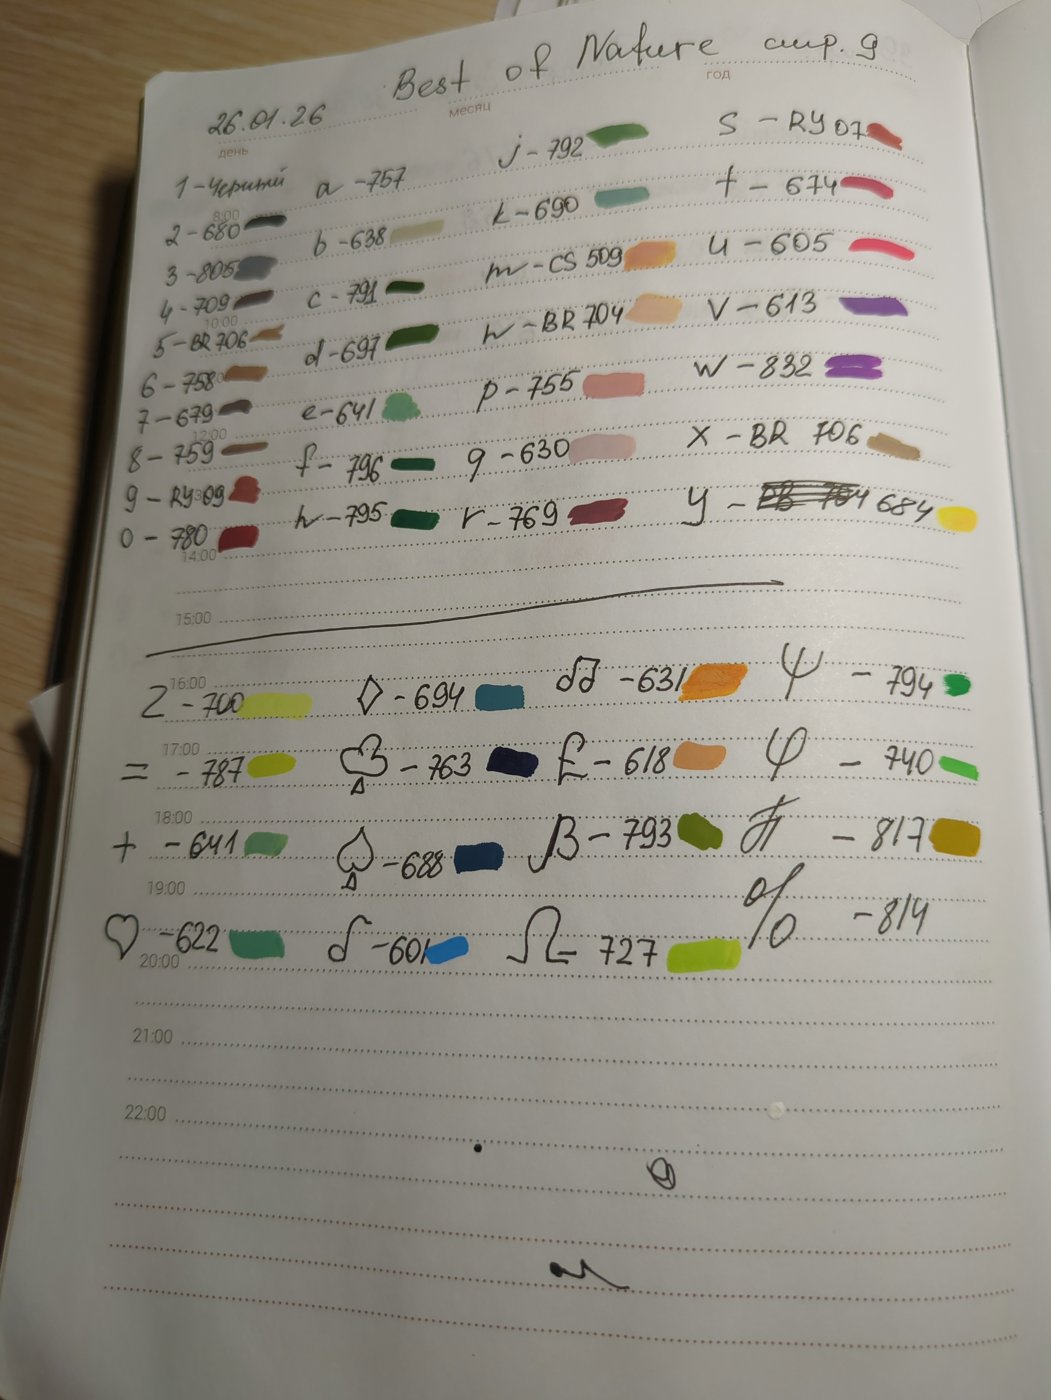 Best of Nature стр. 9
месяц
год
26.01.26
день
1 - Черный
8:00
2 - 680
3 - 805
4 - 709
10:00
5 - BR 706
6 - 758
7 - 679
12:00
8 - 759
9 - RY 09
0 - 780
14:00
a - 757
b - 638
c - 791
d - 697
e - 641
f - 796
h - 795
j - 792
k - 690
m - CS 509
n - BR 704
p - 755
q - 630
r - 769
S - RY 07
t - 674
u - 605
V - 613
W - 832
X - BR 706
y - 684
15:00
16:00
Z - 700
◊ - 694
♫ - 631
Ψ - 794
17:00
= - 787
♣ - 763
£ - 618
φ - 740
18:00
+ - 641
♠ - 688
β - 793
- 817
19:00
♡ - 622
♪ - 601
Ω - 727
% - 814
20:00
21:00
22:00